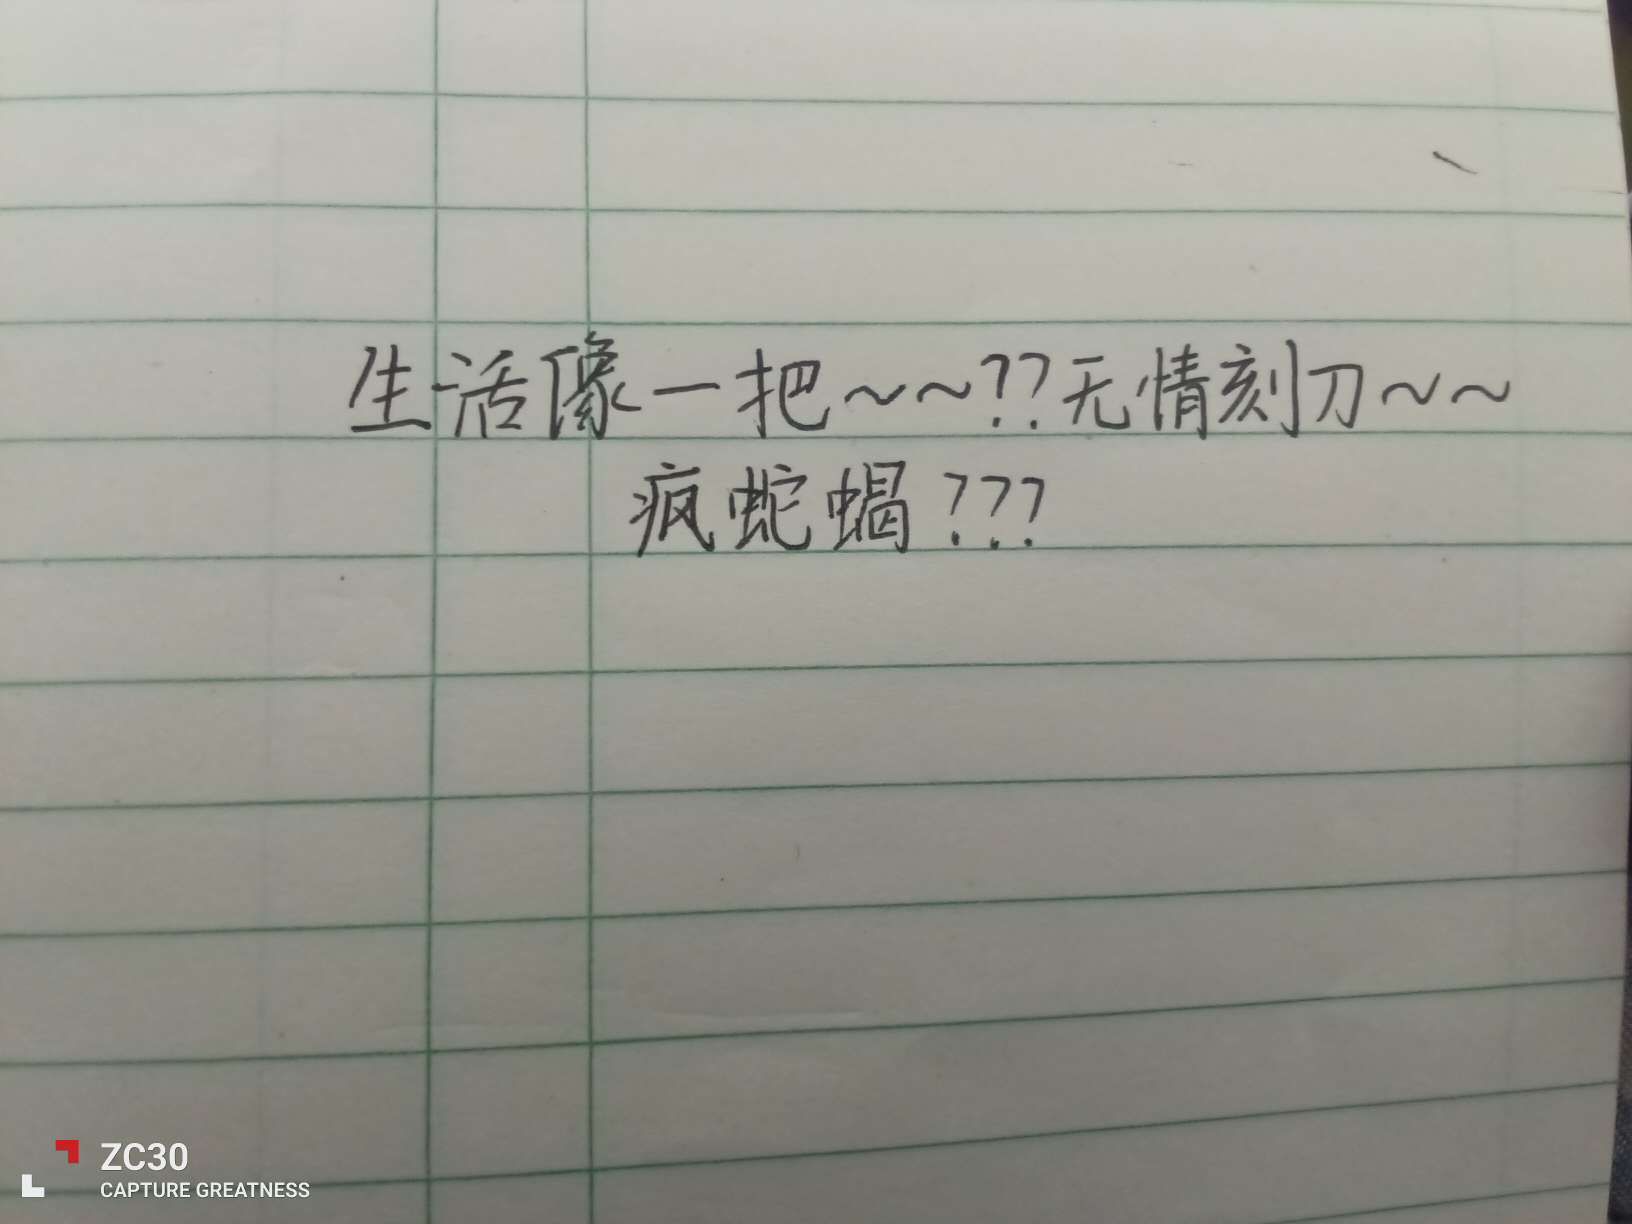 生活像一把~~??无情刻刀~~
疯蛇蝎???
ZC30
CAPTURE GREATNESS